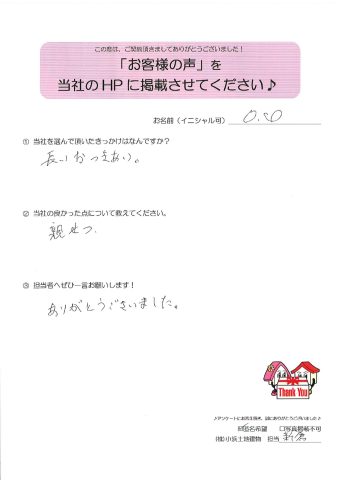 この度は、ご契約頂きましてありがとうございました！
「お客様の声」を
当社のHPに掲載させてください♪
お名前（イニシャル可）
① 当社を選んで頂いたきっかけはなんですか？
長いおつきあい。
② 当社の良かった点について教えてください。
親せつ
③ 担当者へぜひ一言お願いします！
ありがとうございました。
Thank You
♪アンケートにお答え頂き、誠にありがとうございました♪
匿名希望 □写真掲載不可
(株)小浜土地建物 担当 新倉